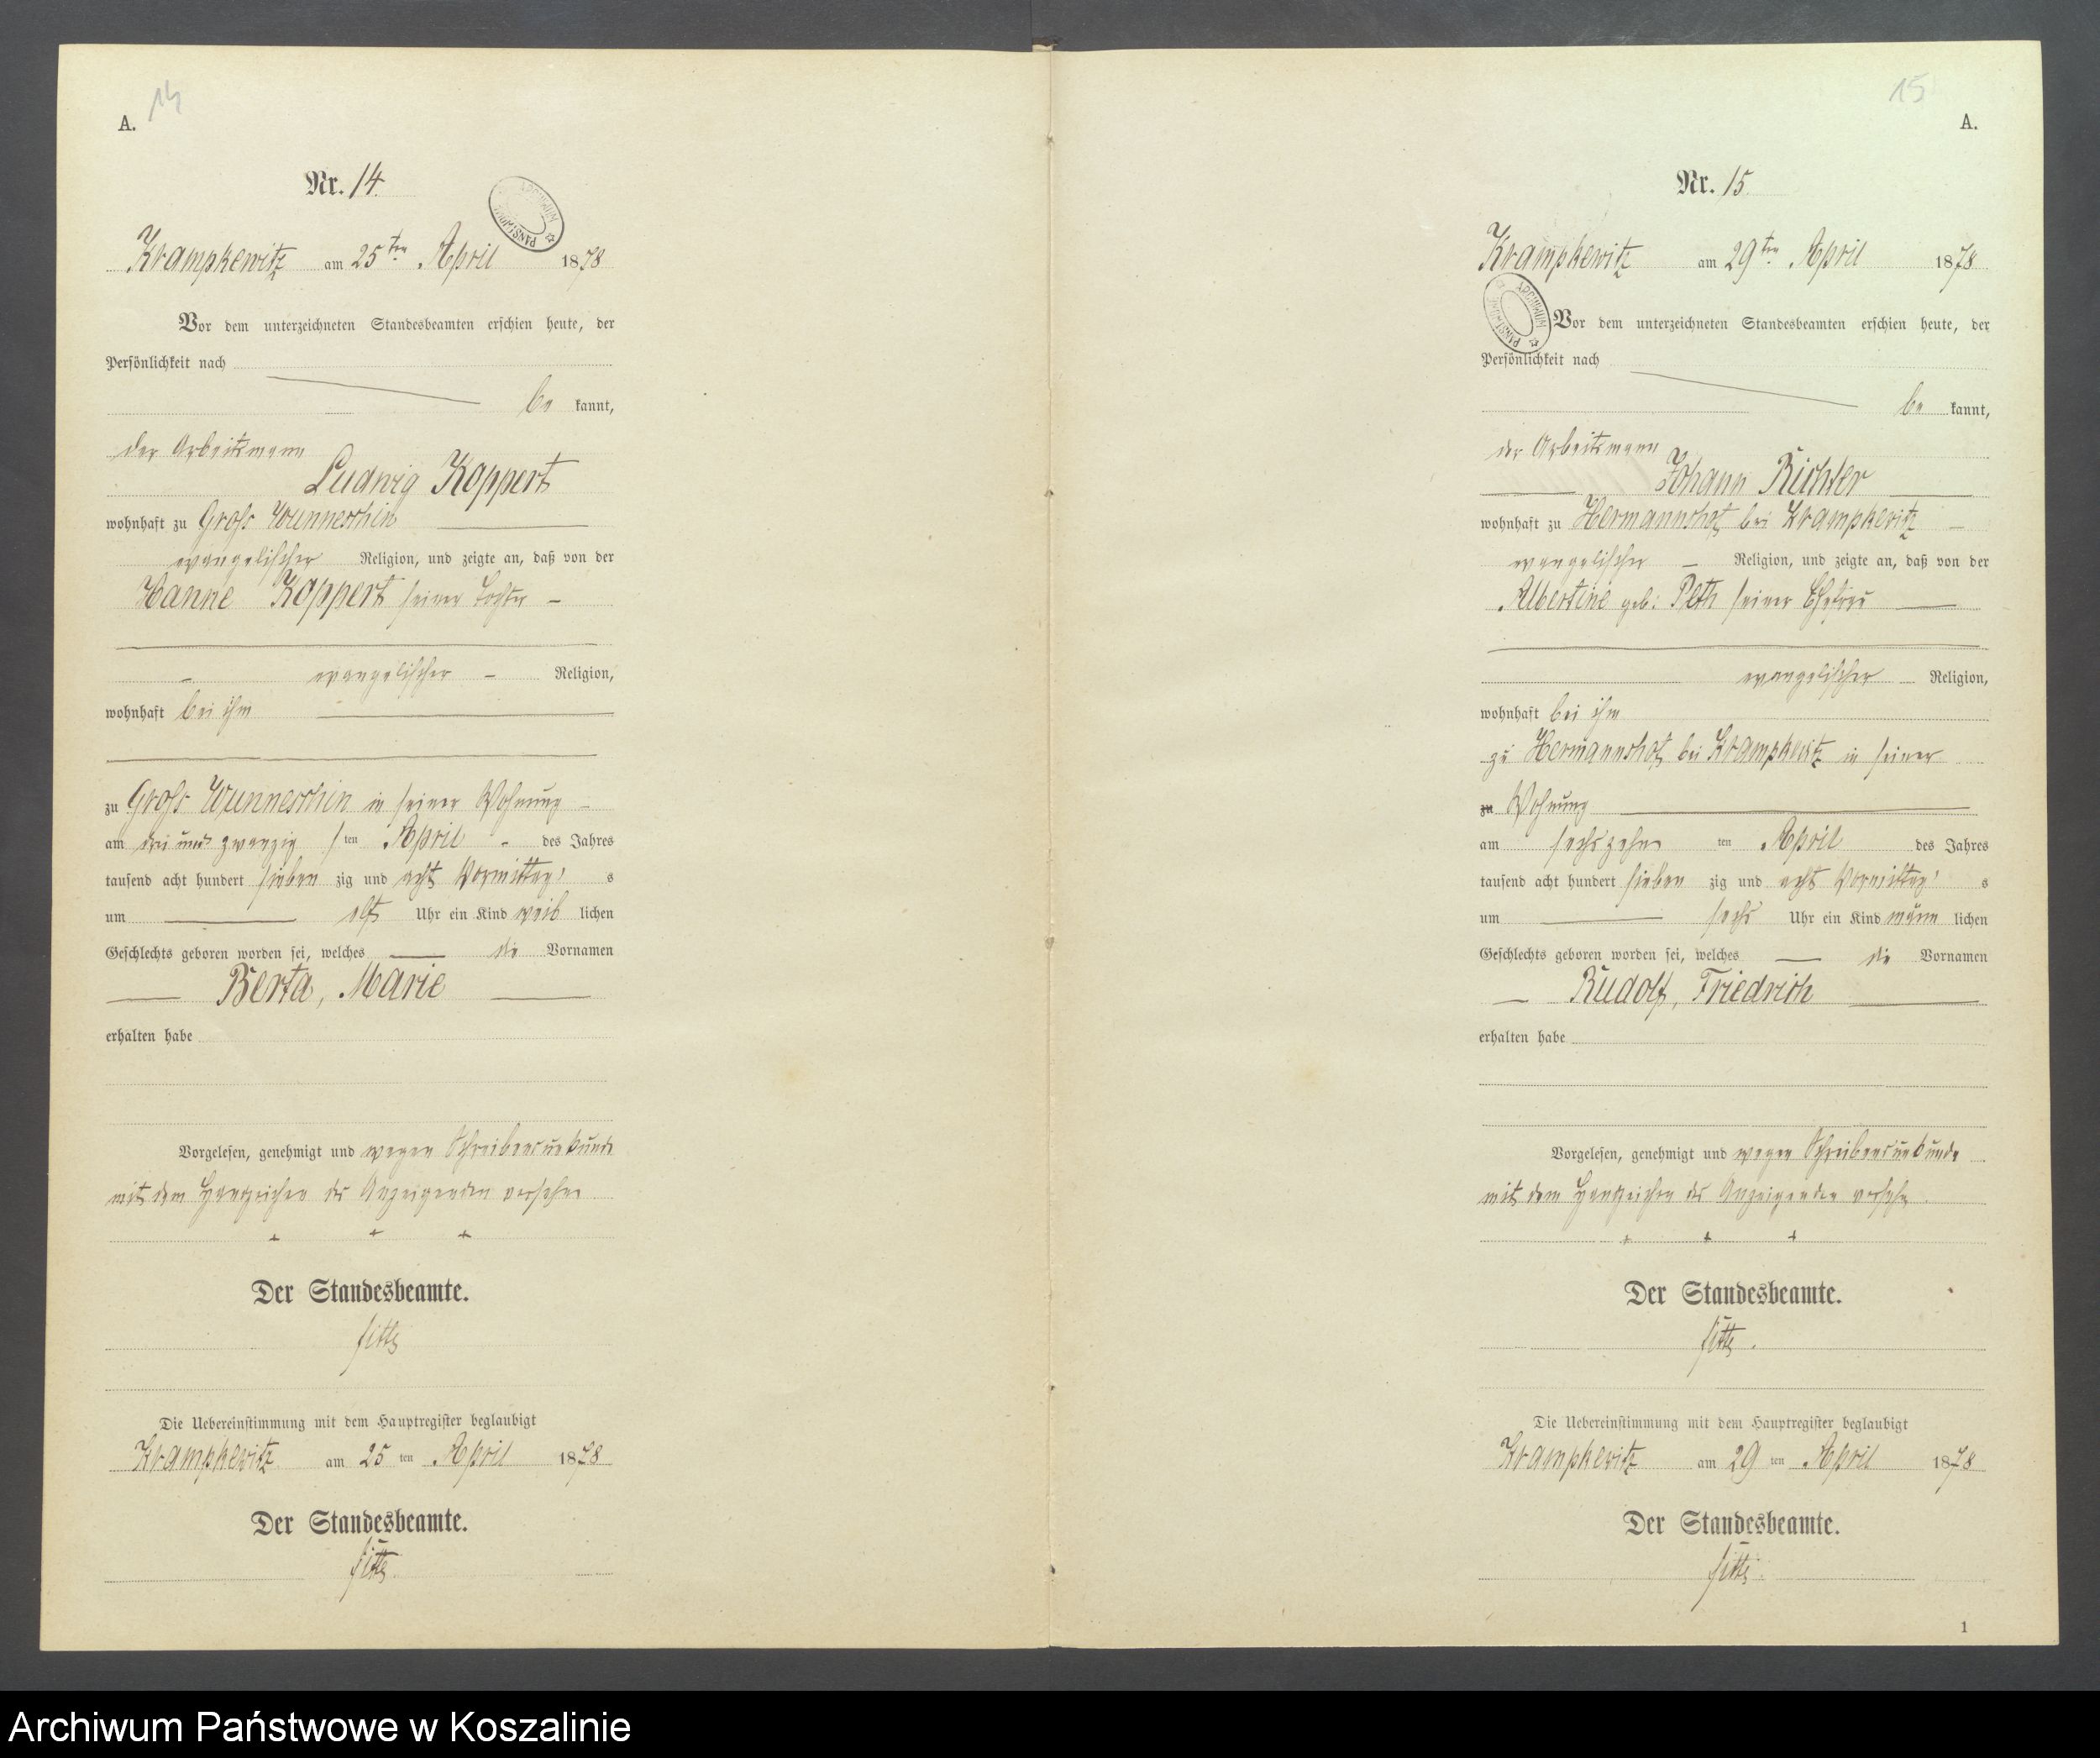 14
A.
Nr. 14.
Krampkewitz am 25ten April 1878
Vor dem unterzeichneten Standesbeamten erschien heute, der
Persönlichkeit nach
be kannt,
der Arbeitsmann
Ludwig Koppert
wohnhaft zu Groß Wunneschin
evangelischer Religion, und zeigte an, daß von der
Hanne Koppert seiner Tochter
evangelischer Religion,
wohnhaft bei ihm
zu Groß Wunneschin in seiner Wohnung
am drei und zwanzig sten April des Jahres
tausend acht hundert sieben zig und acht Vormittag s
um elf Uhr ein Kind weib lichen
Geschlechts geboren worden sei, welches die Vornamen
Berta, Marie
erhalten habe
Vorgelesen, genehmigt und wegen Schreibensunkunde
mit dem Handzeichen des Anzeigenden versehen
+ + +
Der Standesbeamte.
Die Uebereinstimmung mit dem Hauptregister beglaubigt
Krampkewitz am 25 ten April 1878
Der Standesbeamte.
15
A.
Nr. 15.
Krampkewitz am 29ten April 1878
ARCHIWUM PAŃSTWOWE
Vor dem unterzeichneten Standesbeamten erschien heute, der
Persönlichkeit nach
be kannt,
der Arbeitsmann
Johann Richter
wohnhaft zu Hermannshof bei Krampkewitz
evangelischer Religion, und zeigte an, daß von der
Albertine geb: Peth seiner Ehefrau
evangelischer Religion,
wohnhaft bei ihm
zu Hermannshof bei Krampkewitz in seiner
zu Wohnung
am sechszehn ten April des Jahres
tausend acht hundert sieben zig und acht Vormittag s
um sechs Uhr ein Kind männ lichen
Geschlechts geboren worden sei, welches die Vornamen
Rudolf, Friedrich
erhalten habe
Vorgelesen, genehmigt und wegen Schreibensunkunde
mit dem Handzeichen des Anzeigenden versehen
+ + +
Der Standesbeamte.
Die Uebereinstimmung mit dem Hauptregister beglaubigt
Krampkewitz am 29 ten April 1878
Der Standesbeamte.
1
Archiwum Państwowe w Koszalinie